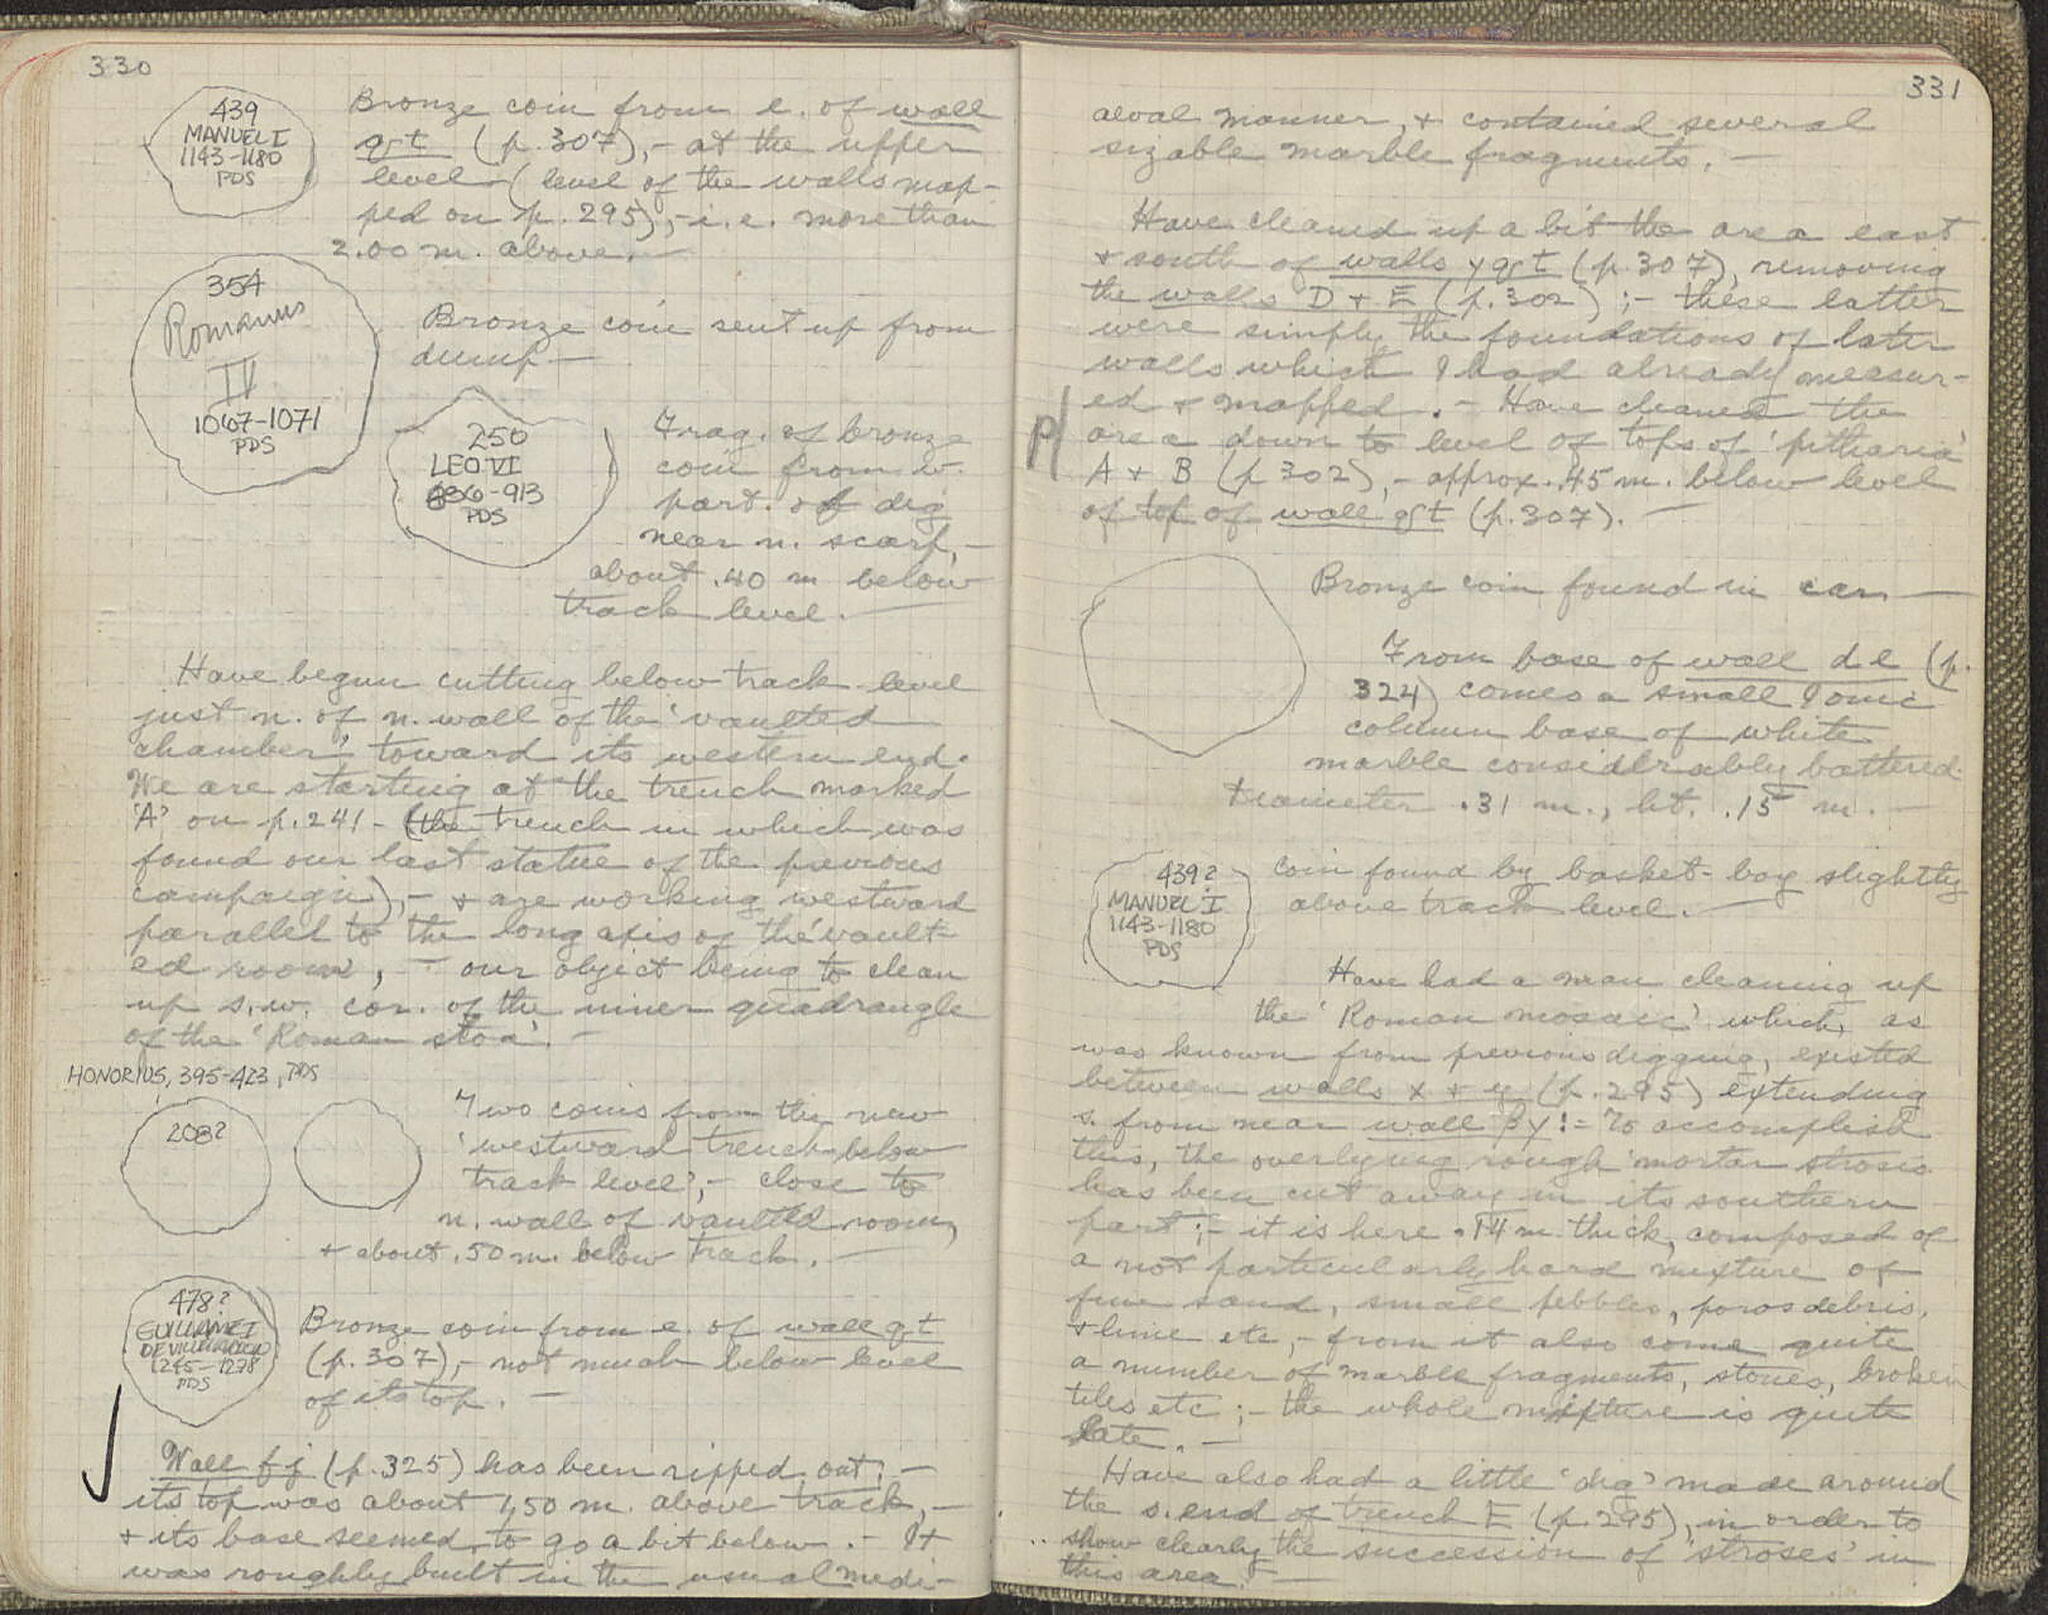 330
439
MANUEL I
1143-1180
PDS
Bronze coin from e. of wall
qrt (p. 307), - at the upper
level (level of the walls map-
ped on p. 295), - i.e. more than
2.00 m. above. -
354
Romanus
IV
1067-1071
PDS
Bronze coin sent up from
dump -
250
LEO VI
886-913
PDS
Frag. of bronze
coin from w.
part. of dig
near n. scarf, -
about .40 m below
track level. -
Have begun cutting below track level
just n. of n. wall of the 'vaulted
chamber' toward its western end.
We are starting at the trench marked
'A' on p. 241 - (the trench in which was
found our last statue of the previous
campaign), - + are working westward
parallel to the long axis of the 'vault-
ed room', - our object being to clean
up s.w. cor. of the inner quadrangle
of the 'Roman stoa'. -
HONORIUS, 395-423, PDS
208?
Two coins from the new
'westward trench below
track level', - close to
n. wall of vaulted room,
+ about .50 m. below track. -
478?
GUILLAUME I
DE VILLEHARDOUIN
1245-1278
PDS
Bronze coin from e. of wall qrt
(p. 307), - not much below level
of its top. -
Wall fj (p. 325) has been ripped out; -
its top was about 1,50 m. above track, -
+ its base seemed to go a bit below. - It
was roughly built in the usual medi-
331
aeval manner, + contained several
sizable marble fragments. -
Have cleaned up a bit the area east
+ south of walls yqrt (p. 307), removing
the walls D + E (p. 302) ; - these latter
were simply the foundations of later
walls which I had already measur-
ed + mapped. - Have cleaned the
area down to level of tops of 'pitharia'
A + B (p 302), - approx. .45 m. below level
of top of wall qrt (p. 307). -
P/
Bronze coin found in car. -
From base of wall de (p.
324) comes a small Ionic
column base of white
marble considerably battered.
Diameter .31 m., ht. .15 m. -
439?
MANUEL I
1143-1180
PDS
Coin found by basket-boy slightly
above track level. -
Have had a man cleaning up
the 'Roman mosaic' which, as
was known from previous digging, existed
between walls x + y (p. 295) extending
s. from near wall βγ : - To accomplish
this, the overlying rough mortar strosis
has been cut away in its southern
part ; - it is here .14 m. thick, composed of
a not particularly hard mixture of
fine sand, small pebbles, poros debris,
+ lime etc, - from it also come quite
a number of marble fragments, stones, broken
tiles etc ; - the whole mixture is quite
late. -
Have also had a little 'dig' made around
the s. end of trench E (p. 295), in order to
show clearly the succession of 'stroses' in
this area. -